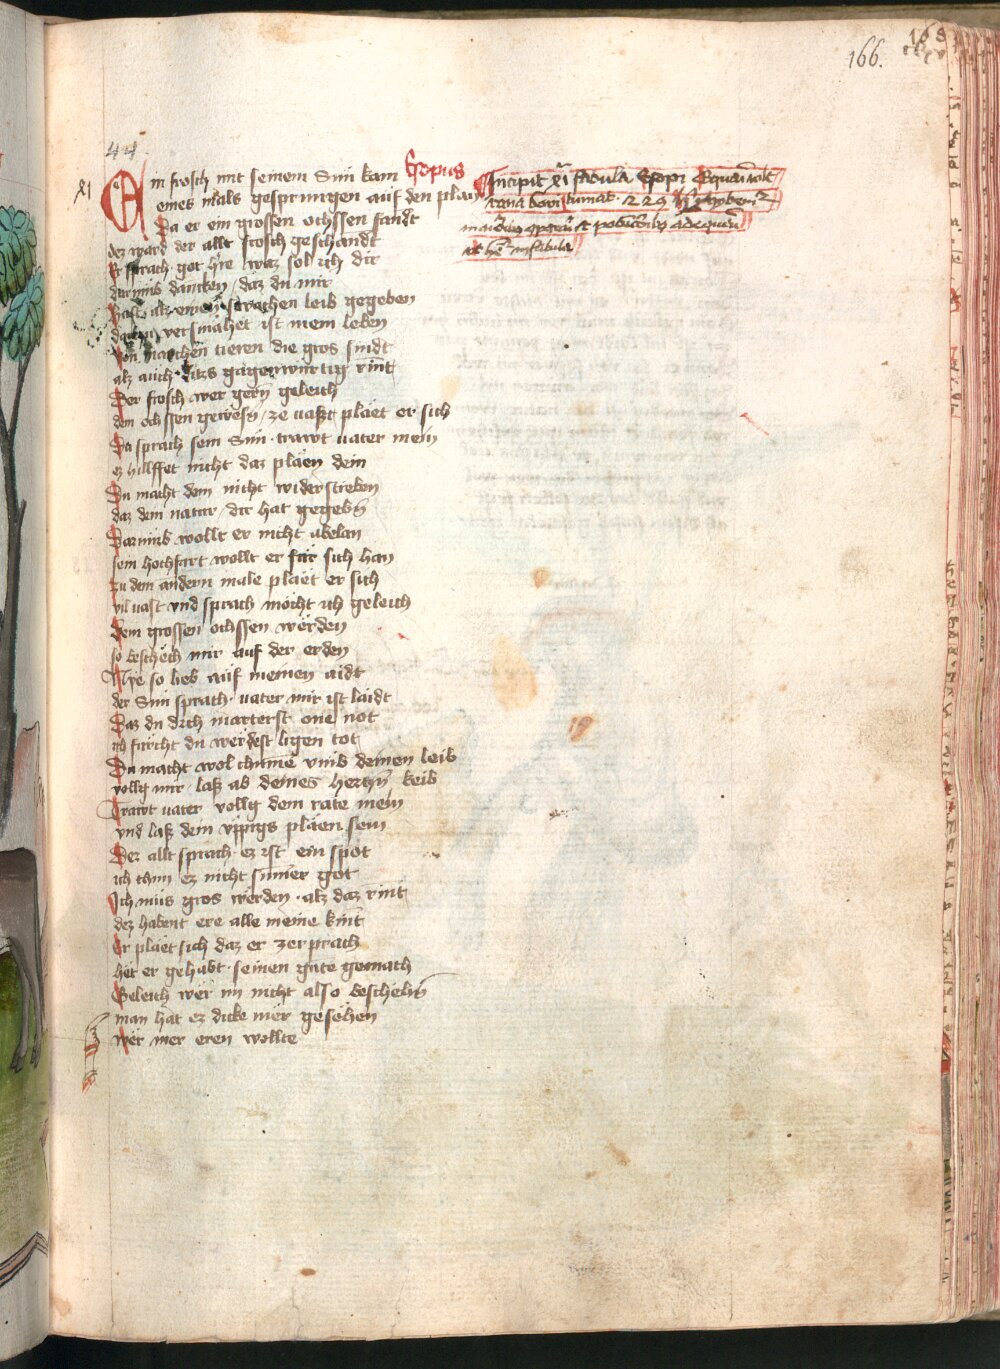 166.
44.
XI
Esopus
Ein frosch mit seinem Sun kam
eines mals gesprungen auf den plan
Da er ein grossen ochssen fandt
dez ward der allt frosch geschandt
Er sprach got hie waz sol ich dir
darumb dancken / daz du mir
Hast als einen swachen leib gegeben
versmähet ist mein leben
Von manchen tieren die gros sindt
alz auch gagenwürtig rint
Der frosch wer gern geleich
dem ochssen gewesn / ze vasst pläet er sich
Da sprach sein Sun trawt vater mein
ez hillffet nicht daz pläen dein
Du macht dem nicht widerstreben
daz dein natur / dir hat gegebn
Darumb wollt er nicht abelan
sein hochfart wollt er für sich han
Zu dem andern male pläet er sich
vil vast vnd sprach möcht ich geleich
Dem grossen ochssen werden
so beschech mir auf der erden
Nye so lieb auf meinen aidt
der Sun sprach vater mir ist laidt
Daz du dich marterst one not
ich fürcht du werdest ligen tot
Du macht wol chumē vmb deinen leib
vollg mir laß ab deines hertzn keib
Trawt vater vollg dem rate mein
vnd laß dein vppigs pläen sein
Der allt sprach ez ist ein spot
ich thun ez nicht sumer got
Ich muis gros werden alz daz rint
dez habent ere alle meine kint
Er pläet sich daz er zerprach
het er gehabt seinen gute gemach
Geleich wer im nicht also beschehn
man hat ez dicke mer gesehen
Wer mer eren wollte
Incipit XI fabula Esopi
rana bovi tumat
ut in fabula